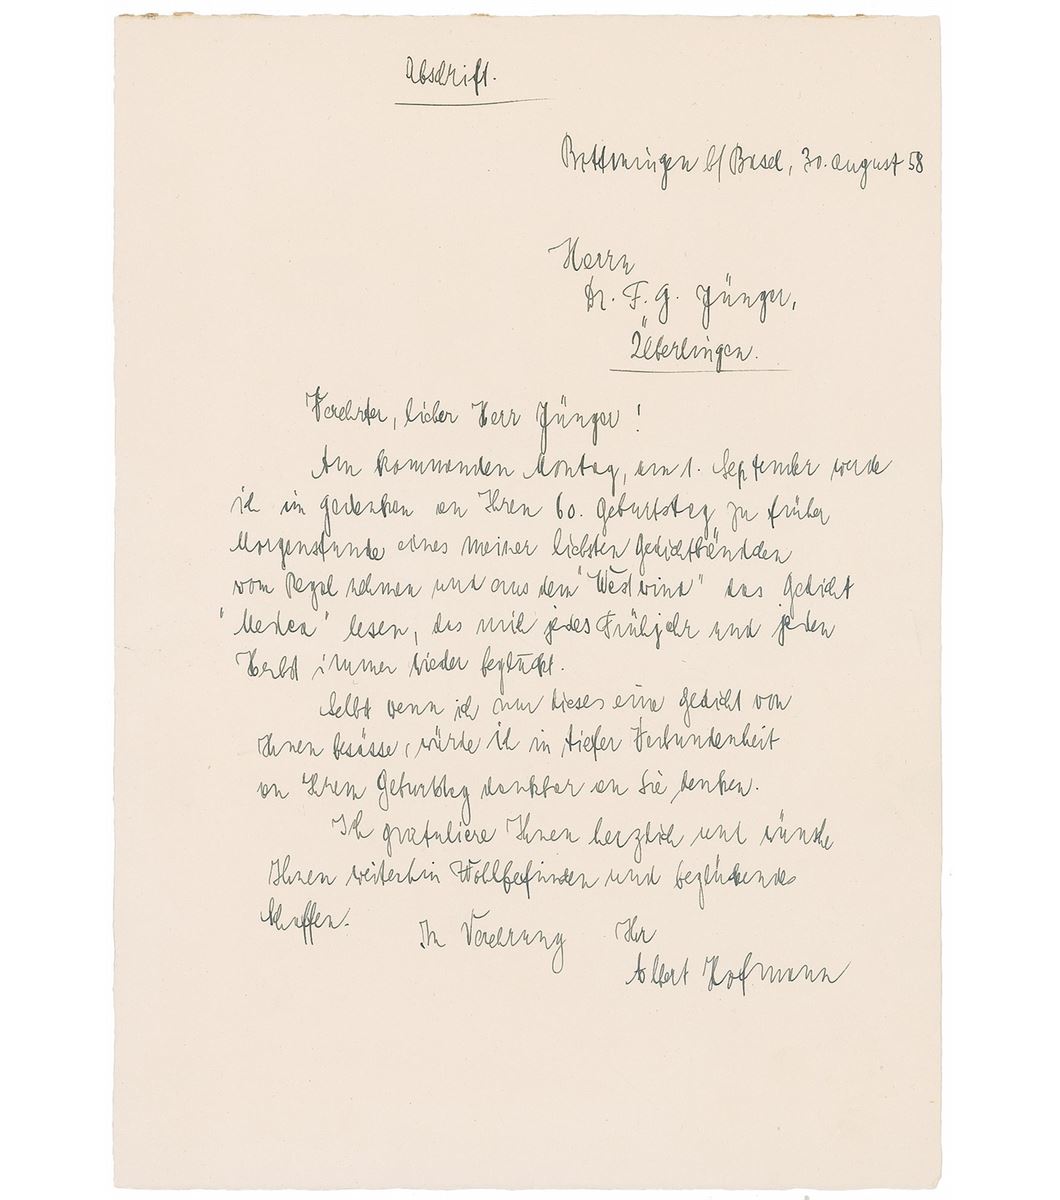 Abschrift.
Bottmingen b/ Basel, 30. August 58
Herrn
Dr. F. G. Jünger,
Überlingen.
Verehrter, lieber Herr Jünger!
Am kommenden Montag, am 1. September werde
ich im Gedenken an Ihren 60. Geburtstag zu früher
Morgenstunde eines meiner liebsten Gedichtbändchen
vom Regal nehmen und aus dem "Westwind" das Gedicht
"Medea" lesen, das mich jedes Frühjahr und jeden
Herbst immer wieder beglückt.
Selbst wenn ich nur dieses eine Gedicht von
Ihnen besässe, würde ich in tiefer Verbundenheit
an Ihrem Geburtstag dankbar an Sie denken.
Ich gratuliere Ihnen herzlich und wünsche
Ihnen weiterhin Wohlbefinden und beglückendes
Schaffen.
In Verehrung Ihr
Albert Hofmann